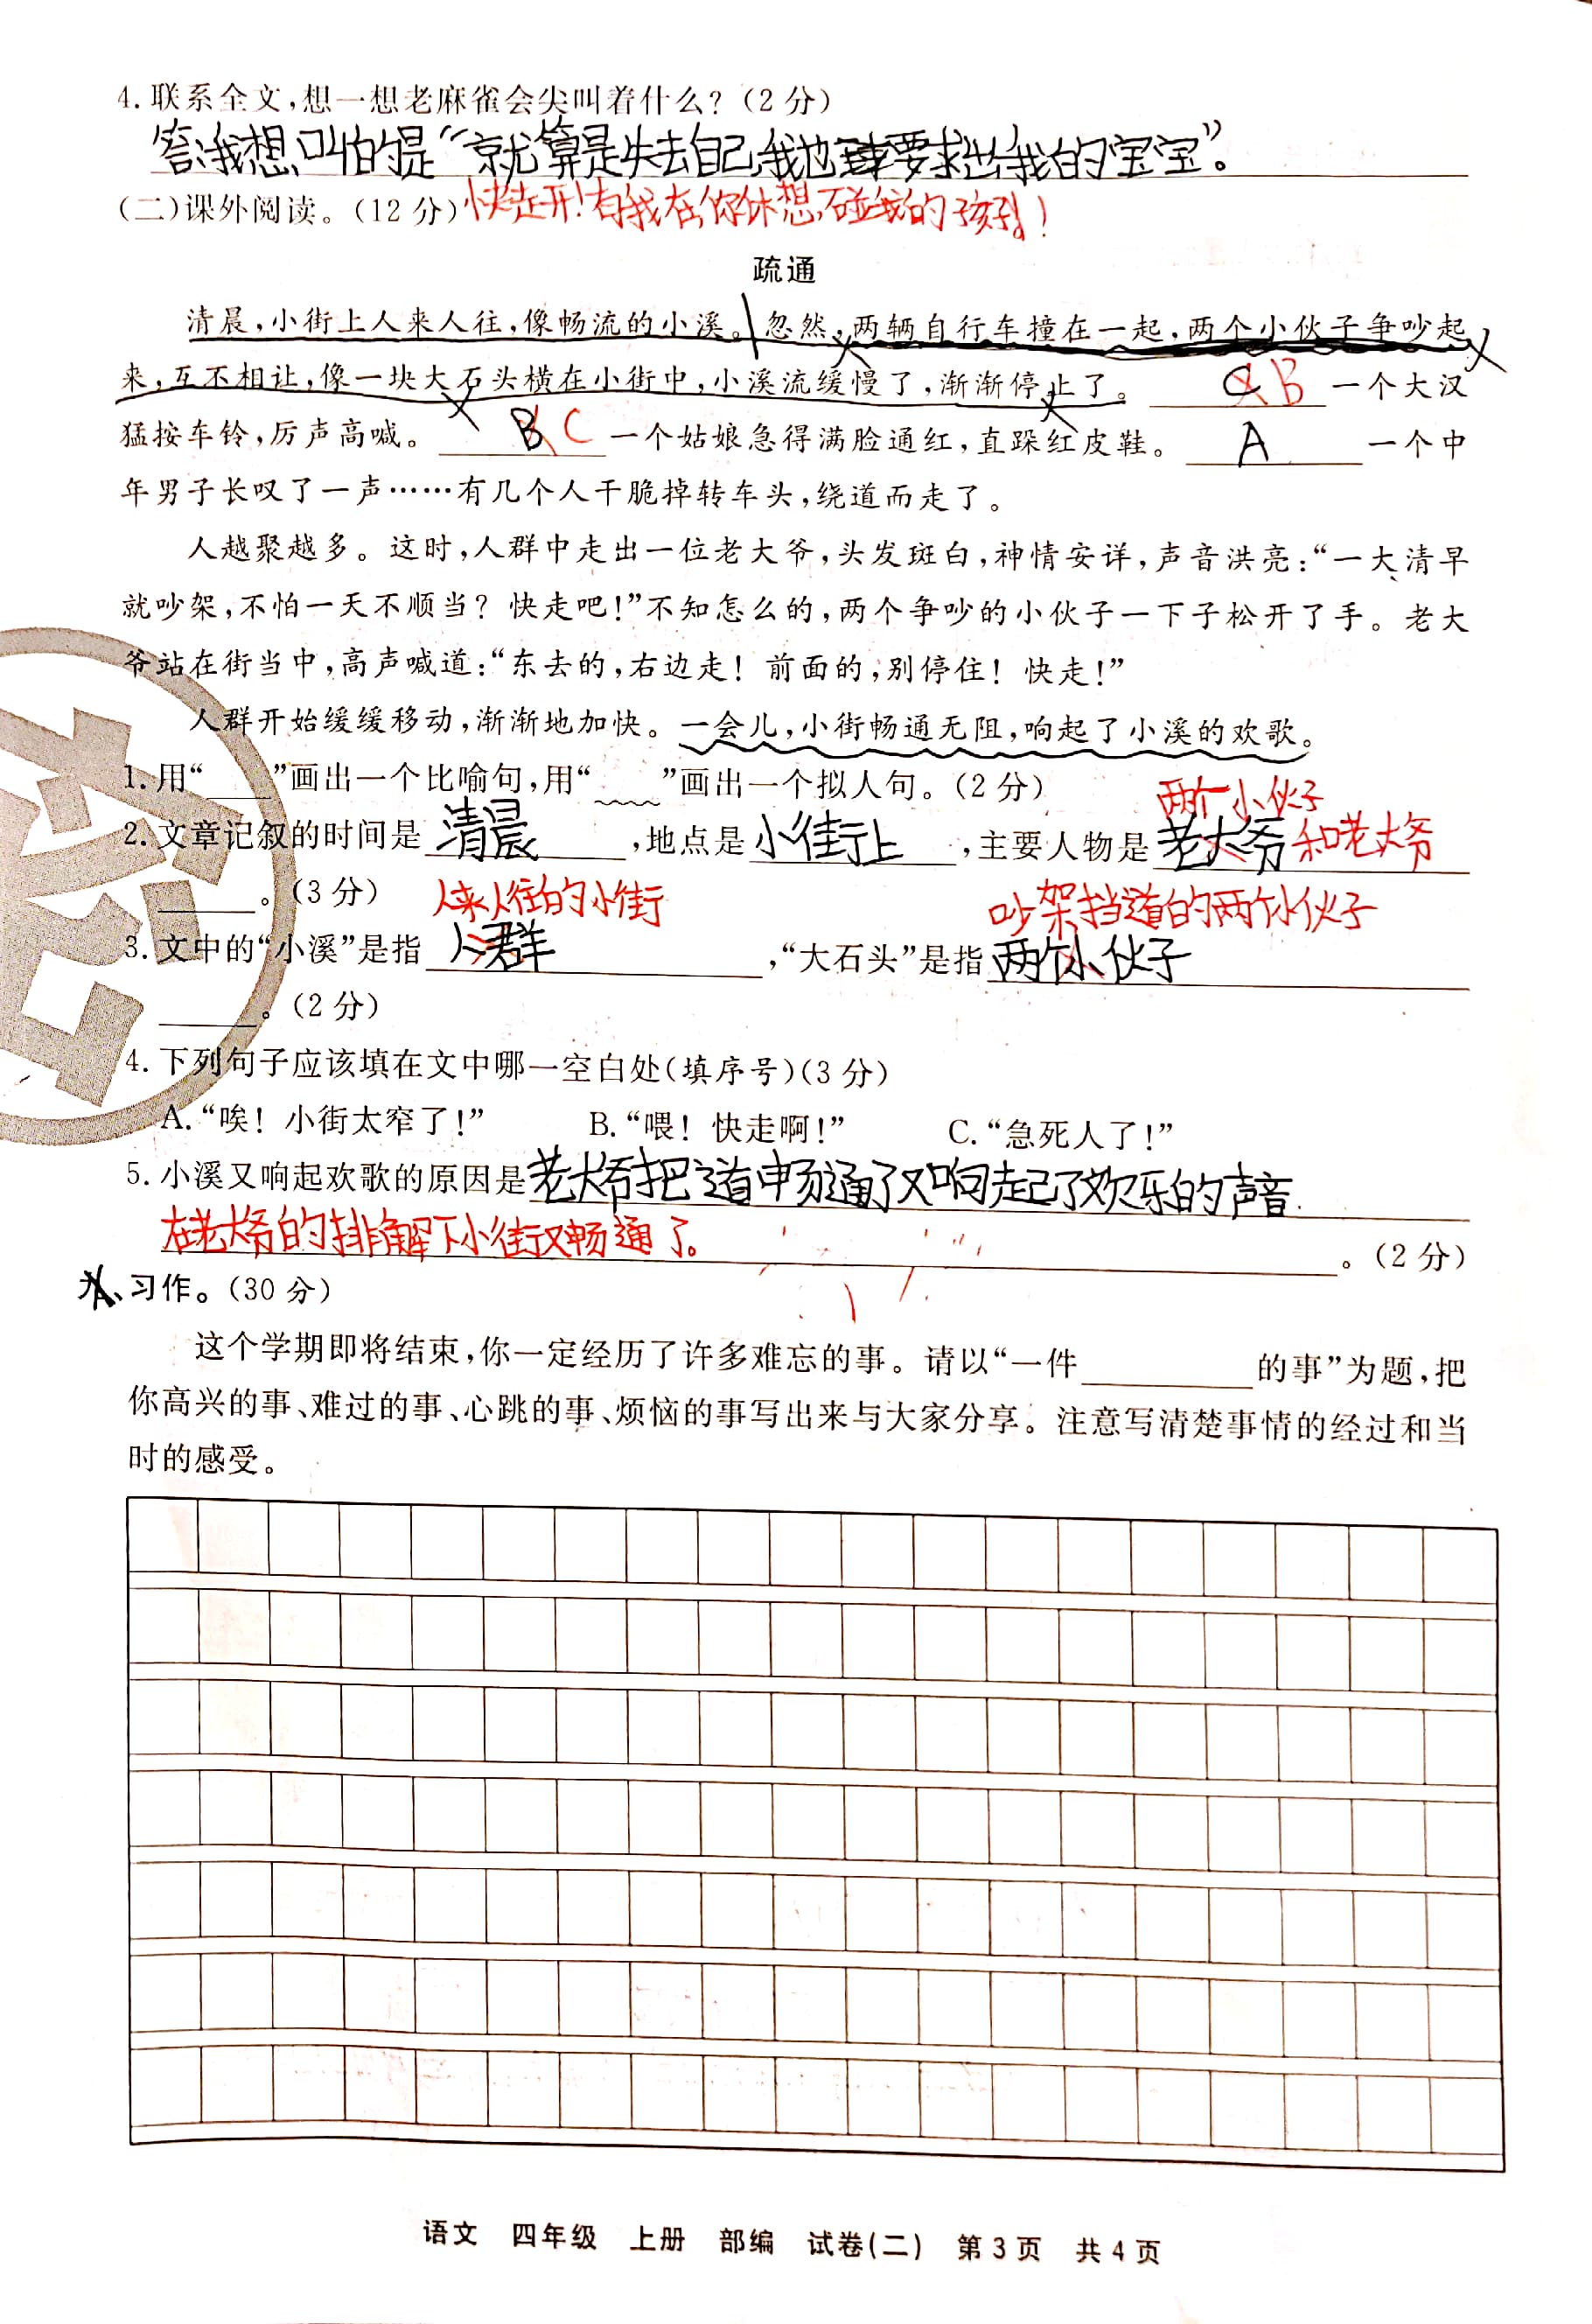 4.联系全文,想一想老麻雀会尖叫着什么?(2分)
答:我想,叫的是“就算是失去自己,我也要求出我的宝宝”。
(二)课外阅读。(12分)
快走开!有我在,你休想碰我的孩子!
疏通
清晨,小街上人来人往,像畅流的小溪。忽然,两辆自行车撞在一起,两个小伙子争吵起
来,互不相让,像一块大石头横在小街中,小溪流缓慢了,渐渐停止了。 C B 一个大汉
猛按车铃,厉声高喊。 B C 一个姑娘急得满脸通红,直跺红皮鞋。 A 一个中
年男子长叹了一声……有几个人干脆掉转车头,绕道而走了。
人越聚越多。这时,人群中走出一位老大爷,头发斑白,神情安详,声音洪亮:“一大清早
就吵架,不怕一天不顺当?快走吧!”不知怎么的,两个争吵的小伙子一下子松开了手。老大
爷站在街当中,高声喊道:“东去的,右边走!前面的,别停住!快走!”
人群开始缓缓移动,渐渐地加快。一会儿,小街畅通无阻,响起了小溪的欢歌。
1.用“____”画出一个比喻句,用“﹏﹏”画出一个拟人句。(2分)
两个小伙子
2.文章记叙的时间是清晨,地点是小街上,主要人物是老大爷 和老大爷
____。(3分)
人来人往的小街 吵架挡道的两个小伙子
3.文中的“小溪”是指人群,“大石头”是指两个小伙子
____。(2分)
4.下列句子应该填在文中哪一空白处(填序号)(3分)
A.“唉!小街太窄了!” B.“喂!快走啊!” C.“急死人了!”
5.小溪又响起欢歌的原因是老大爷把道申畅通了又响起了欢乐的声音.
在老大爷的排解下小街又畅通了。
。(2分)
八、习作。(30分)
这个学期即将结束,你一定经历了许多难忘的事。请以“一件________的事”为题,把
你高兴的事、难过的事、心跳的事、烦恼的事写出来与大家分享。注意写清楚事情的经过和当
时的感受。
语文 四年级 上册 部编 试卷(二) 第3页 共4页